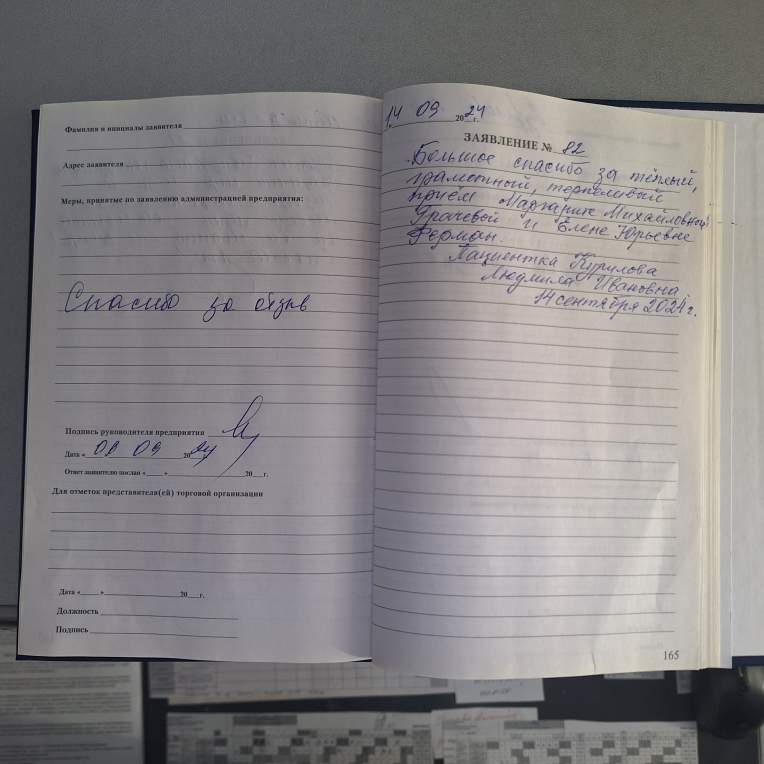 Фамилия и инициалы заявителя
Адрес заявителя
Меры, принятые по заявлению администрацией предприятия:
Спасибо за отзыв
Подпись руководителя предприятия
Дата « 09 09 2024
Ответ заявителю послан « » 20 г.
Для отметок представителя(ей) торговой организации
Дата « » 20 г.
Должность
Подпись
14 09 2024 г.
ЗАЯВЛЕНИЕ № 82
Большое спасибо за тёплый,
грамотный, терпеливый
приём Маргарите Михайловной
Грачевой и Елене Юрьевне
Ферман.
Пациентка Курилова
Людмила Ивановна
14 сентября 2024 г.
165